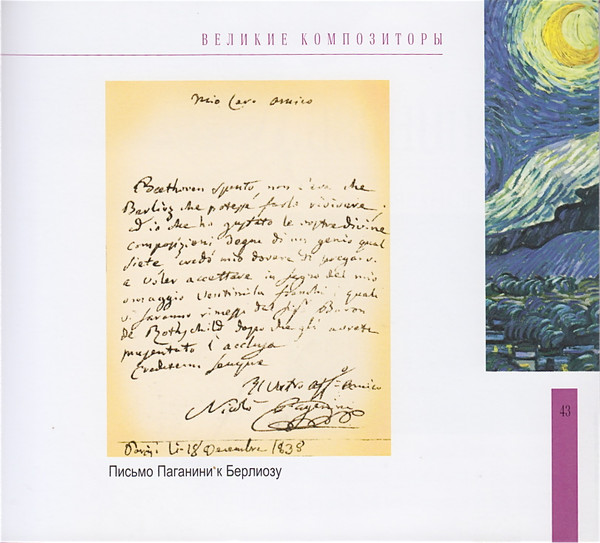 ВЕЛИКИЕ КОМПОЗИТОРЫ
Mio Caro Amico
Beethoven spento, non c'era che
Berlioz che potesse farlo rivivere;
ed io che ho gustato le vostre divine
composizioni degne di un genio qual
siete credo mio dovere di pregarvi
a voler accettare in segno del mio
omaggio ventimila franchi, i quali
vi saranno rimessi dal Sigr Baron
de Rothschild dopo che gli avrete
presentato l'acclusa
Credetemi sempre
Il Vostro aff.mo Amico
Nicolò Paganini
Parigi li 18 Decembre 1838
Письмо Паганини к Берлиозу
43